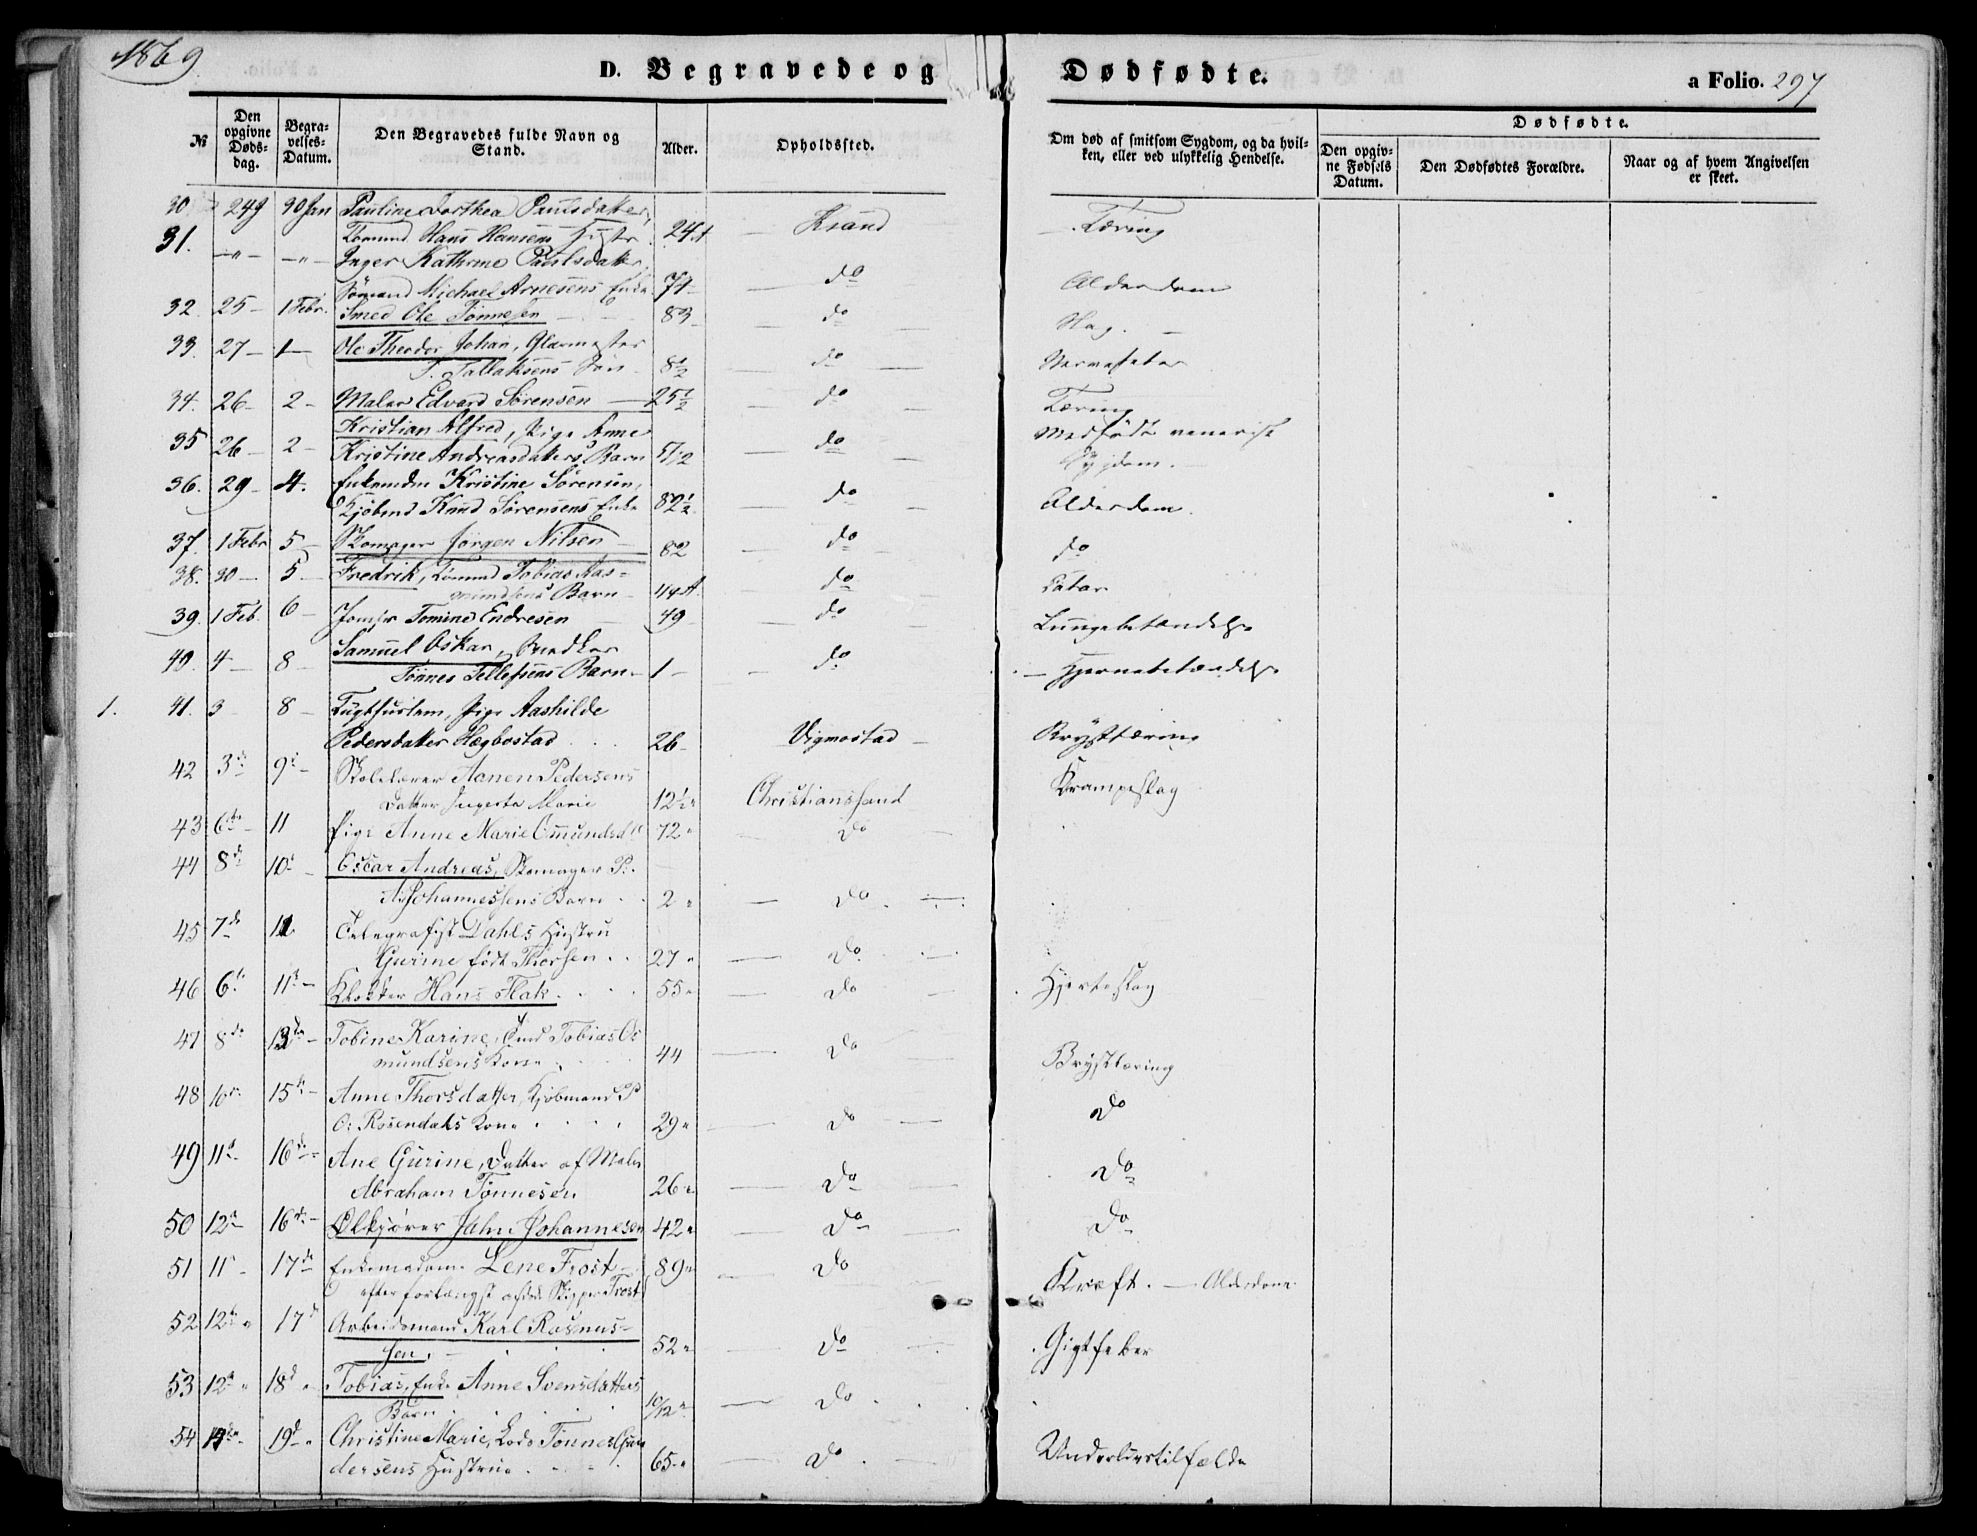 1869
D. Begravede og Dødfødte.
a Folio. 297
№
Den opgivne Døds-dag.
Begra-velses-Datum.
Den Begravedes fulde Navn og Stand.
Alder.
Opholdssted.
Om død af smitsom Sygdom, og da hvil-ken, eller ved ulykkelig Hendelse.
Dødfødte.
Den opgiv-ne Fødsels Datum.
Den Dødfødtes Forældre.
Naar og af hvem Angivelsen er skeet.
30 24 30 Jan Pauline Dorthea Paulsdatter,
Tømmd Hans Hansens Hustr 24 Ksand Tæring
31. —"— —"— Inger Kathrine Paulsdatter
Sømand Michael Arnesens Enke 74 do Alderdom
32. 25— 1 Febr. Smed Ole Tønnesen 83 do Slag.
33. 27— 1— Ole Theodor Johan, Glarmester
T. Tallaksens Søn 8½ do Nervefeber
34. 26— 2— Maler Edvard Sørensen 25½ do Tæring
35 26— 2— Kristian Alfred, Pige Anne
Kristine Andreasdatters Barn do Medfødt venerisk
Sygdom.
36. 29— 4. Enkemdm Kristine Sørensen,
Kjøbmd Knud Sørensens Enke 82½ do Alderdom.
37. 1 Febr 5— Skomager Jørgen Nilsen 82 do do
38. 30— 5— Fredrik, Tømmd Tobias Aas=
mundsens Barn do Catar
39. 1 Feb. 6— Jomfr Tomine Endresen 49 do Lungebetændelse
40. 4— 8— Samuel Oskar, Snedker
Tønnes Tellefsens Barn 1— do Hjernebetændelse
1. 41. 3— 8— Tugthuslem, Pige Aashilde
Pedersdatter Hægbostad 26— Vigmostad Brysttæring
42 3de 9de— Skolelærer Aanen Pedersens
Datter Ingerta Marie 12½ Christianssand Krampeslag
43 6te— 11 Pige Anne Marie Omundsd 72 Do
44 8de 10de Oscar Andreas, Skomager P.
A. Johannessens Barn 2 Do
45 7de 11 Telegrafist Dahls Hustru
Gurine født Thorsen 27 Do
46 6te 11te— Klokker Hans Flak 55 Do Hjerteslag
47 8de 13de— Tobine Karine, Tmd Tobias Os
mundsens Kone 44 Do Brysttæring
48 10de 15de— Anne Thorsdatter, Kjøbmand P
O. Rosendahls Kone 29 Do Do
49 11te 16de Ane Gurine, Datter af Maler
Abraham Tønnesen 26 Do Do
50 12te 16de— Ølkjører Jahn Johannesen 42 Do Do
51 11te 17de Enkemadame Lene Frost 89 Do Kræft. — Alderdom
efter forlængst afdøde Skipper Frost
52 12te 17de Arbeidsmand Karl Rasmus=
sen. 52 Do Gigtfeber
53 12te 18de Tobias, Enke Anne Svensdatters
Barn 10/12 Do
54 19de Christine Marie, Lods Tønnes Gun
dersens Hustrue 65 Do Underlivstilfælde